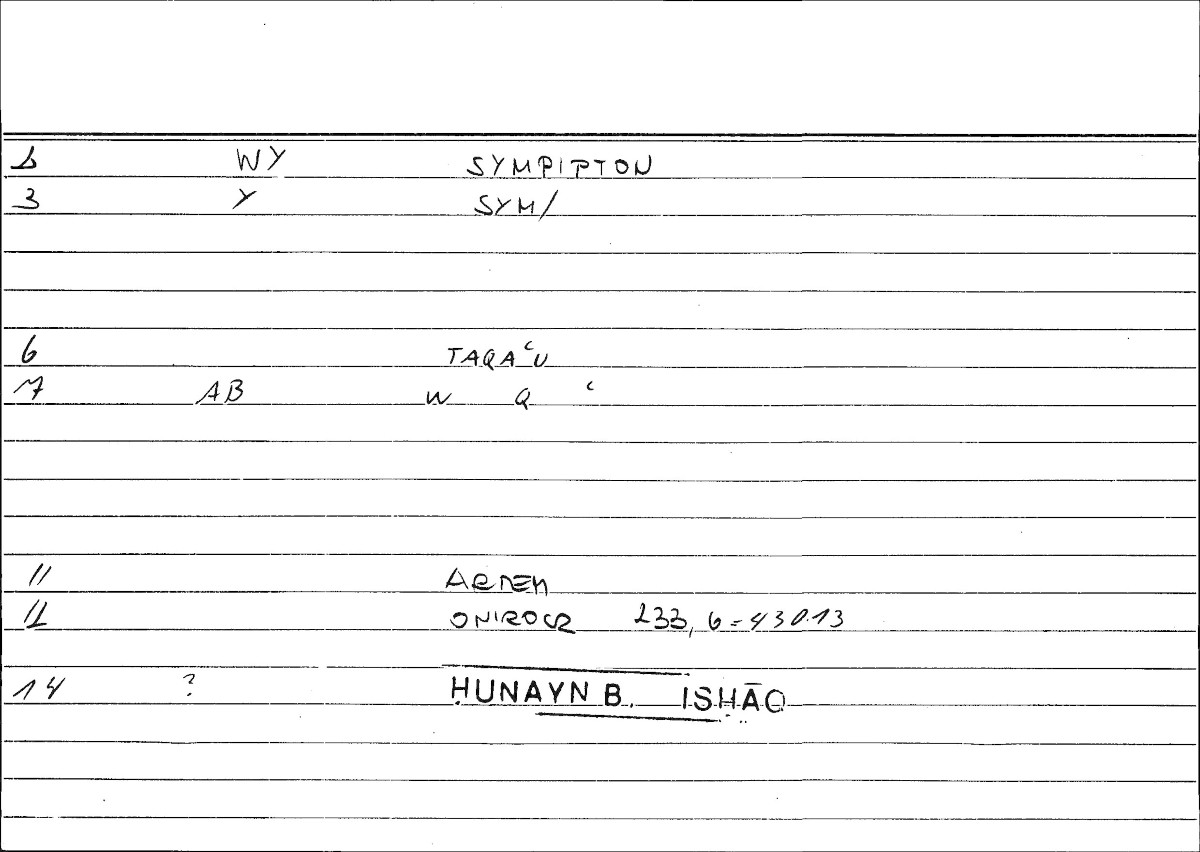 2 WY SYMPIPTON
3 Y SYM/
6 TAQAʿU
7 AB W Q ʿ
11 ARTEM
12 ONIROCR 233, 6 = 430.13
14 ? ḤUNAYN B. ISḤĀQ